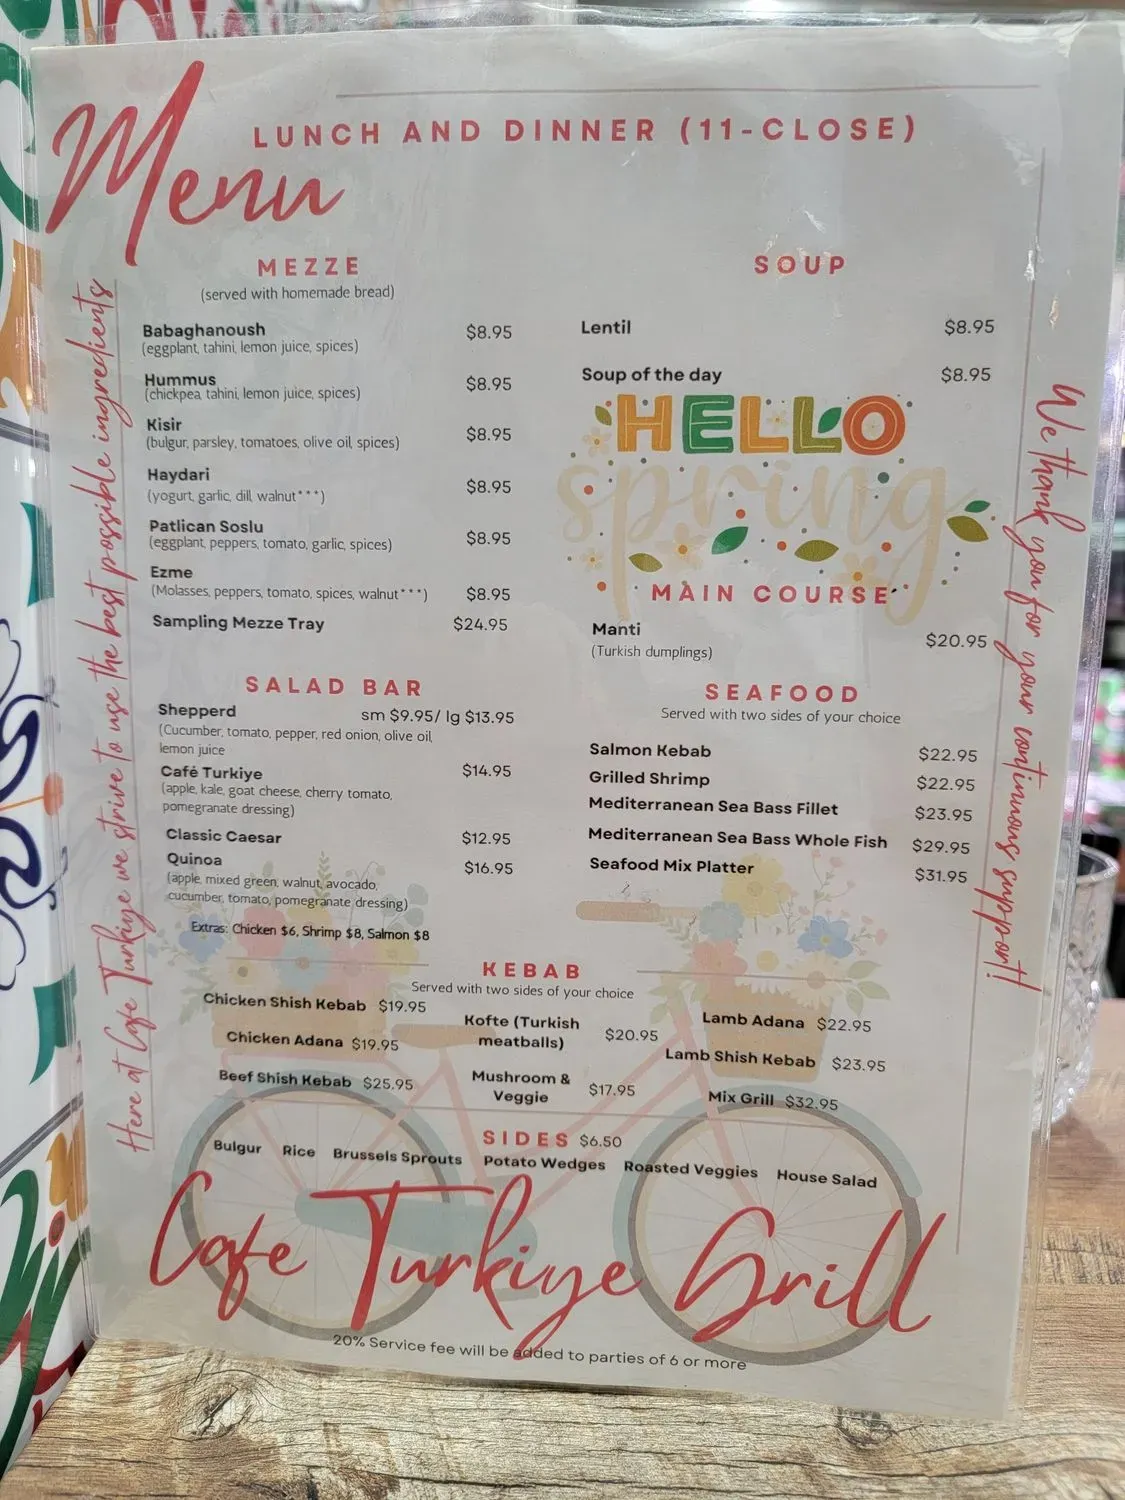 Menu
LUNCH AND DINNER (11-CLOSE)
MEZZE
(served with homemade bread)
Babaghanoush $8.95
(eggplant, tahini, lemon juice, spices)
Hummus $8.95
(chickpea, tahini, lemon juice, spices)
Kisir $8.95
(bulgur, parsley, tomatoes, olive oil, spices)
Haydari $8.95
(yogurt, garlic, dill, walnut***)
Patlican Soslu $8.95
(eggplant, peppers, tomato, garlic, spices)
Ezme $8.95
(Molasses, peppers, tomato, spices, walnut***)
Sampling Mezze Tray $24.95
SALAD BAR
Shepperd sm $9.95/ lg $13.95
(Cucumber, tomato, pepper, red onion, olive oil,
lemon juice
Café Turkiye $14.95
(apple, kale, goat cheese, cherry tomato,
pomegranate dressing)
Classic Caesar $12.95
Quinoa $16.95
(apple, mixed green, walnut, avocado,
cucumber, tomato, pomegranate dressing)
Extras: Chicken $6, Shrimp $8, Salmon $8
SOUP
Lentil $8.95
Soup of the day $8.95
HELLO
spring
MAIN COURSE
Manti $20.95
(Turkish dumplings)
SEAFOOD
Served with two sides of your choice
Salmon Kebab $22.95
Grilled Shrimp $22.95
Mediterranean Sea Bass Fillet $23.95
Mediterranean Sea Bass Whole Fish $29.95
Seafood Mix Platter $31.95
KEBAB
Served with two sides of your choice
Chicken Shish Kebab $19.95
Chicken Adana $19.95
Beef Shish Kebab $25.95
Kofte (Turkish
meatballs) $20.95
Mushroom &
Veggie $17.95
Lamb Adana $22.95
Lamb Shish Kebab $23.95
Mix Grill $32.95
SIDES $6.50
Bulgur Rice Brussels Sprouts Potato Wedges Roasted Veggies House Salad
Cafe Turkiye Grill
20% Service fee will be added to parties of 6 or more
Here at Cafe Turkiye we strive to use the best possible ingredients
We thank you for your continuous support!